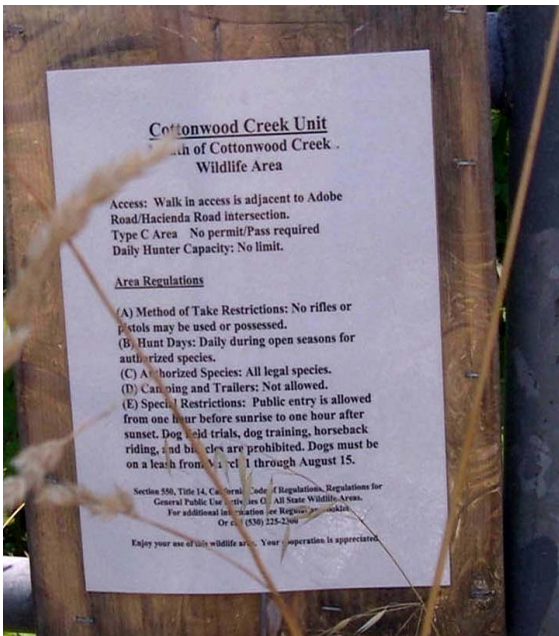 Cottonwood Creek Unit
of Cottonwood Creek
Wildlife Area
Access: Walk in access is adjacent to Adobe
Road/Hacienda Road intersection.
Type C Area No permit/Pass required
Daily Hunter Capacity: No limit.
Area Regulations
(A) Method of Take Restrictions: No rifles or
pistols may be used or possessed.
(B) Hunt Days: Daily during open seasons for
authorized species.
(C) Authorized Species: All legal species.
(D) Camping and Trailers: Not allowed.
(E) Special Restrictions: Public entry is allowed
from one hour before sunrise to one hour after
sunset. Dog field trials, dog training, horseback
riding, and bicycles are prohibited. Dogs must be
on a leash from March 1 through August 15.
Section 550, Title 14, California Code of Regulations, Regulations for
General Public Use Activities On All State Wildlife Areas.
For additional information see Regulation booklet
Or call (530) 225-2300
Enjoy your use of this wildlife area. Your cooperation is appreciated